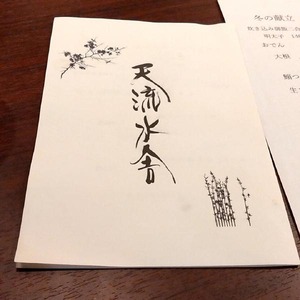 天流水舎
冬の献立
炊き込み御飯二合
明太子
おでん
大根